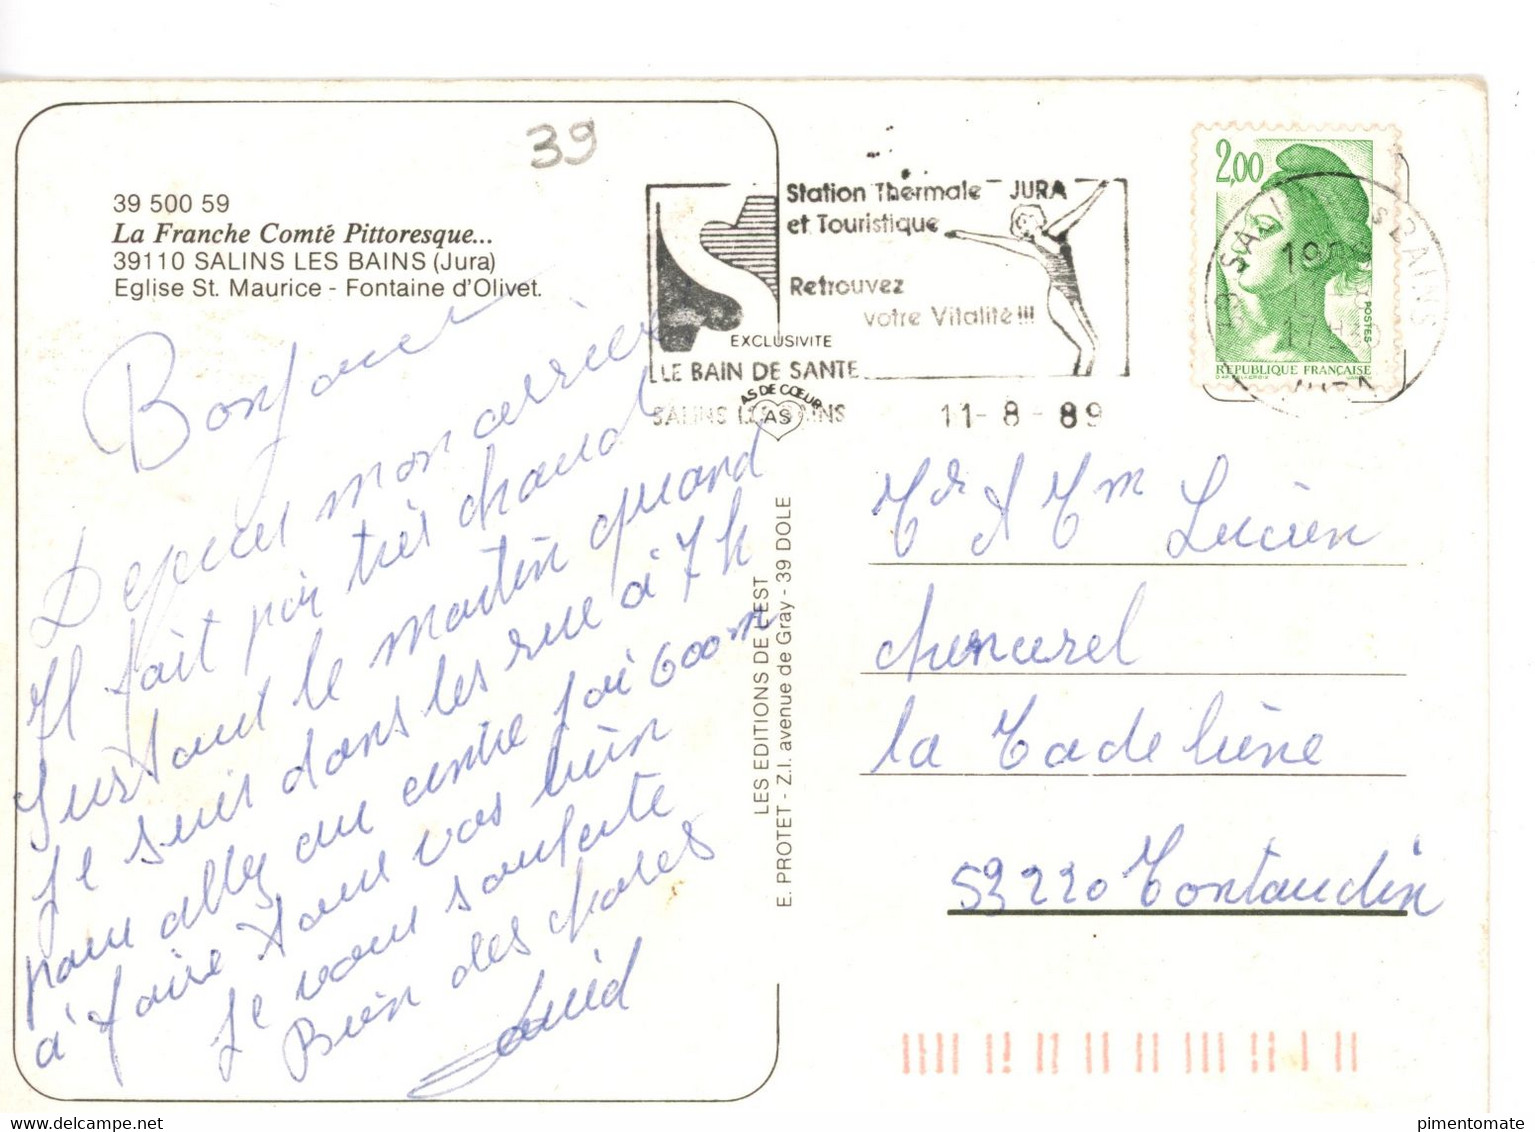 39
39 500 59
La Franche Comté Pittoresque...
39110 SALINS LES BAINS (Jura)
Eglise St. Maurice - Fontaine d'Olivet.
Bonjour
Depuis mon arrivée
Il fait pir très chaud
Surtout le matin quand
Je suis dans les rue à 7 h
pour allez au centre j'ai 600 m
à faire tout vas bien
Je vous souhaite
Bien des choses
David
LES EDITIONS DE L'EST
E. PROTET - Z.I. avenue de Gray - 39 DOLE
Station Thermale JURA
et Touristique
Retrouvez
votre Vitalité !!!
EXCLUSIVITE
LE BAIN DE SANTE
AS DE CŒUR
AS
SALINS LES BAINS 11-8-89
2,00
POSTES
REPUBLIQUE FRANÇAISE
Mr & Mme Lucien
la Madeleine
53220 Montaudin
www.delcampe.net
pimentomate